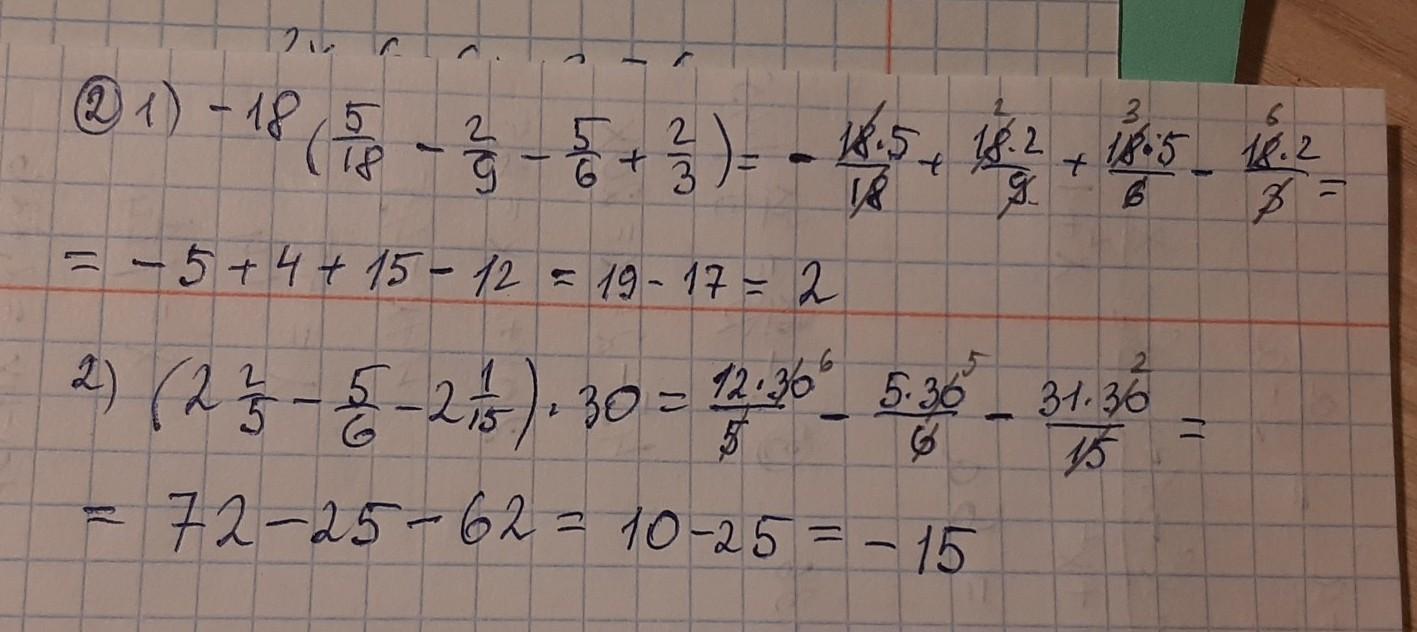 ② 1) -18 (5/18 - 2/9 - 5/6 + 2/3) = - 18·5/18 + 18·2/9 + 18·5/6 - 18·2/3 =
= -5 + 4 + 15 - 12 = 19 - 17 = 2
2) (2 2/5 - 5/6 - 2 1/15) · 30 = 12·30/5 - 5·30/6 - 31·30/15 =
= 72 - 25 - 62 = 10 - 25 = -15